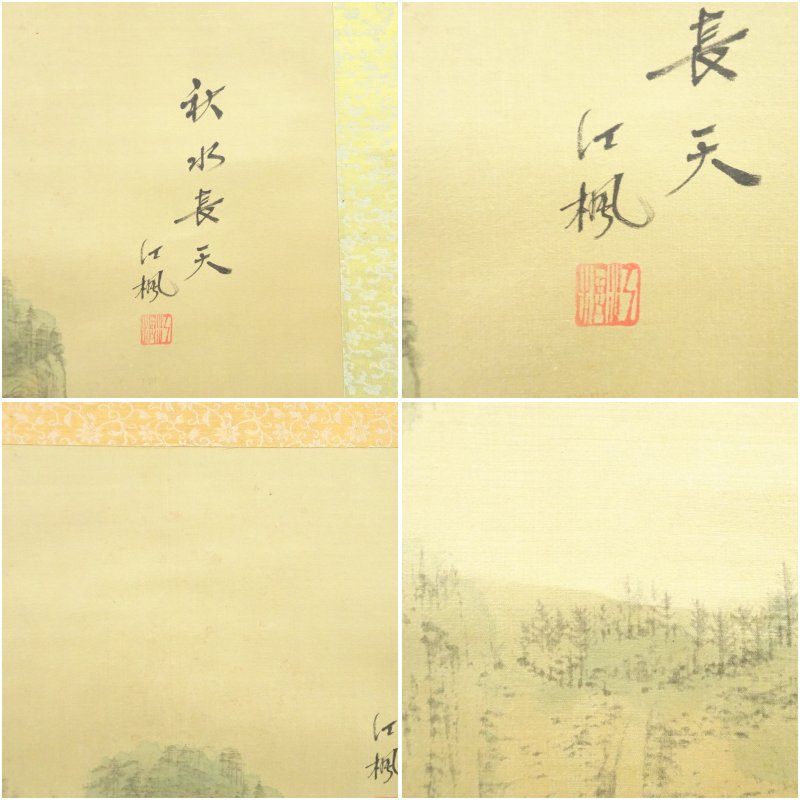 秋水長天
江楓
長天
江楓
江楓